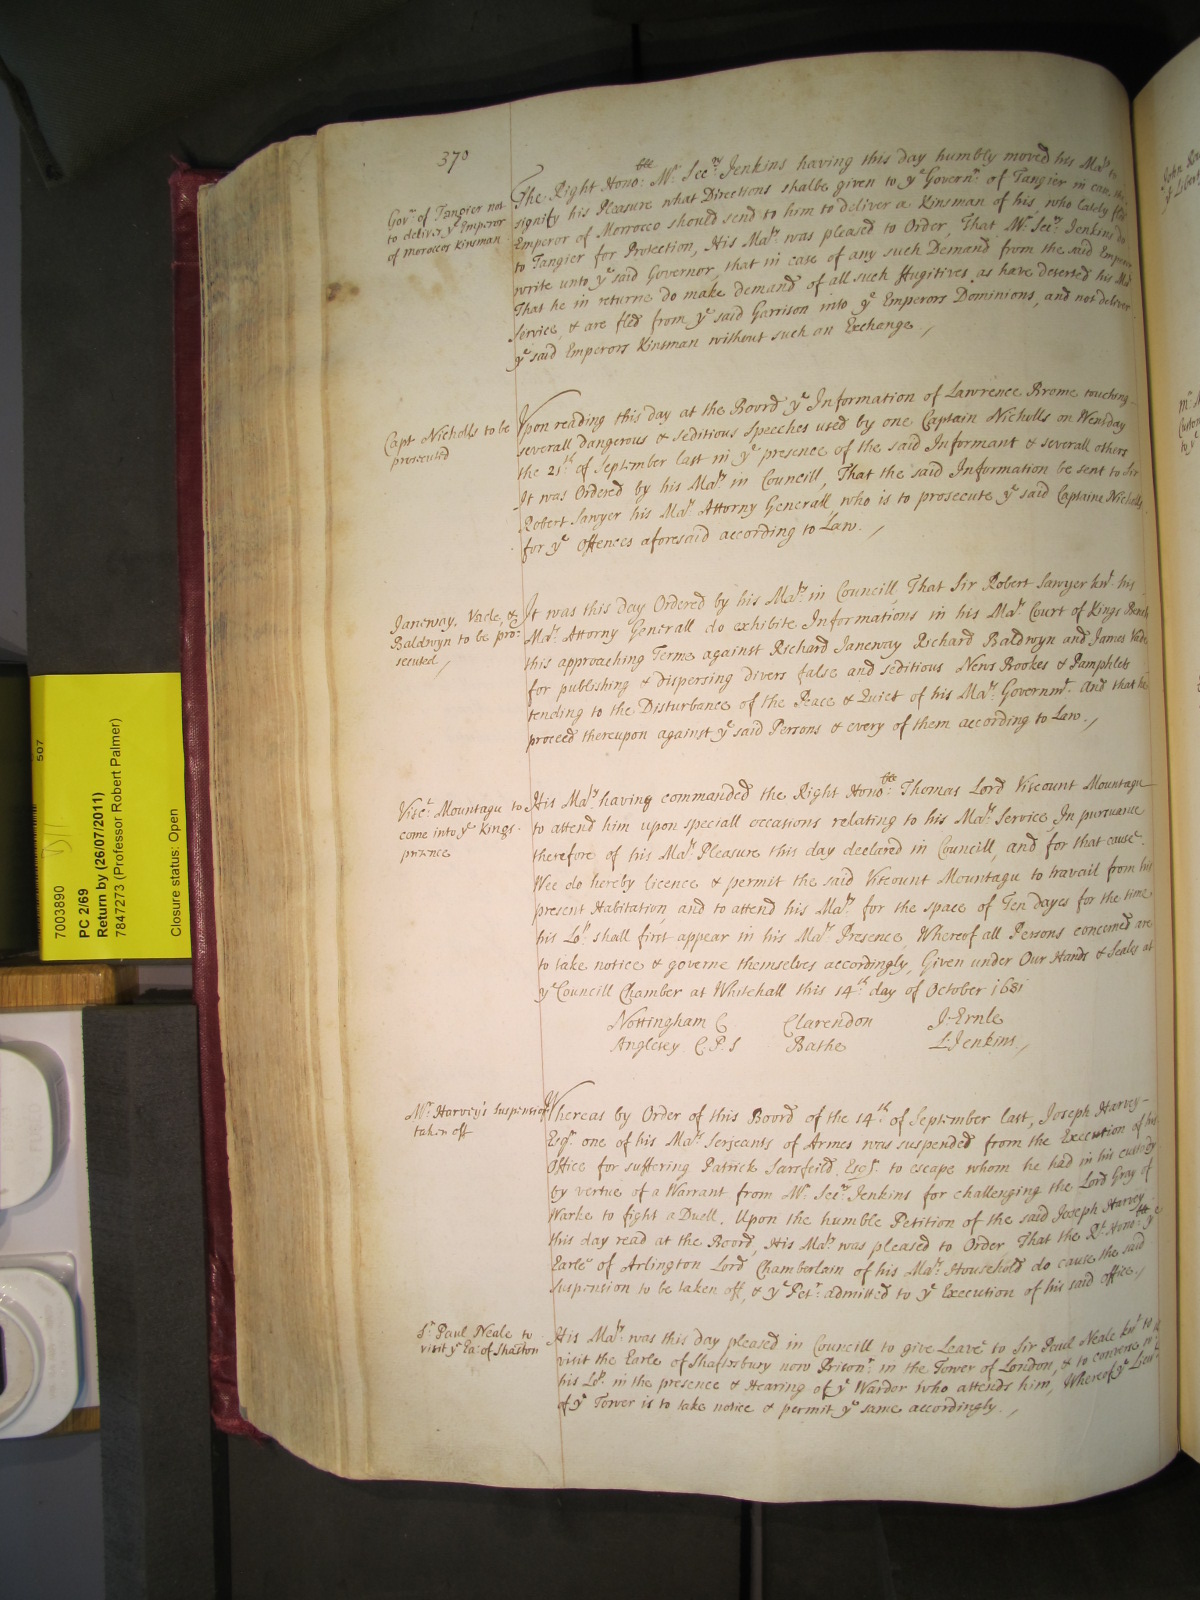 370
Govr: of Tangier not
to deliver ye Emperor
of morocco's Kinsman.
The Right Honoble: Mr. Secry Jenkins having this day humbly moved his Maty to
signify his Pleasure what Directions shalbe given to ye Governr: of Tangier in case the
Emperor of Morrocco should send to him to deliver a Kinsman of his who lately fled
to Tangier for Protection, His Maty was pleased to Order, That Mr. Secry Jenkins do
write unto ye said Governor, that in case of any such Demand from the said Emperor
That he in returne do make demand of all such Fugitives, as have deserted his Mats
Service, & are fled from ye said Garrison into ye Emperors Dominions, and not deliver
ye said Emperors Kinsman without such an Exchange /
Capt Nicholls to be
prosecuted
Upon reading this day at the Board ye Information of Lawrence Brome touching
severall dangerous & seditious speeches used by one Captain Nicholls on Wensday
the 21th of September last in ye presence of the said Informant & severall others
It was Ordered by his Maty in Councill, That the said Information be sent to Sir
Robert Sawyer his Mats Attorny Generall, who is to prosecute ye said Captaine Nicholls
for ye Offences aforesaid according to Law. /
Janeway, Vade, &
Baldwyn to be pro:
secuted /
It was this day Ordered by his Maty in Councill That Sir Robert Sawyer knt. his
Mats Attorny Generall do exhibite Informations in his Mats Court of Kings Bench
this approaching Terme against Richard Janeway Richard Baldwyn and James Vade
for publishing & dispersing divers false and seditious News Bookes & Pamphlets
tending to the Disturbance of the Peace & Quiet of his Mats Governmt. And that he
proceed thereupon against ye said Persons & every of them according to Law. /
Visct. Mountagu to
come into ye Kings
prsence
His Maty having commanded the Right Honoble: Thomas Lord Viscount Mountagu
to attend him upon speciall occations relating to his Mats Service, In pursuance
therefore of his Mats Pleasure this day declared in Councill, and for that cause
Wee do hereby licence & permit the said Viscount Mountagu to travail from his
present Habitation, and to attend his Maty for the space of Ten dayes for the time
his Lop. shall first appear in his Mats Presence, Whereof all Persons concerned are
to take notice & governe themselves accordingly, Given under Our Hands & Seales at
ye Councill Chamber at Whitehall this 14th day of October 1681
Nottingham C Clarendon J: Ernle
Anglesey C.P.S Bathe L: Jenkins /
Mr. Harvey's Suspension
taken off
Whereas by Order of this Board of the 14th of September last, Joseph Harvey
Esqr. one of his Mats Serjeants of Armes was suspended from the Execution of his
Office for suffering Patrick Sarsfeild Esqr. to escape whom he had in his custody
by vertue of a Warrant from Mr. Secry Jenkins for challenging the Lord Gray of
Warke to fight a Duell. Upon the humble Petition of the said Joseph Harvey
this day read at the Board, His Maty was pleased to Order That the Rt. Honoble: ye
Earle of Arlington Lord Chamberlain of his Mats Household do cause the said
suspension to be taken off, & ye Petr: admitted to ye Execution of his said office, /
Sr. Paul Neale to
visit ye Ea: of Shafton
His Maty was this day pleased in Councill to give Leave to Sir Paul Neale knt to
visit the Earle of Shaftsbury now Prisonr: in the Tower of London, & to converse wth
his Lop. in the presence & Hearing of ye Warder who attends him, Whereof ye Lieut.
of ye Tower is to take notice & permit ye same accordingly. /
507
7003890
PC 2/69
Return by (26/07/2011)
7847273 (Professor Robert Palmer)
Closure status: Open